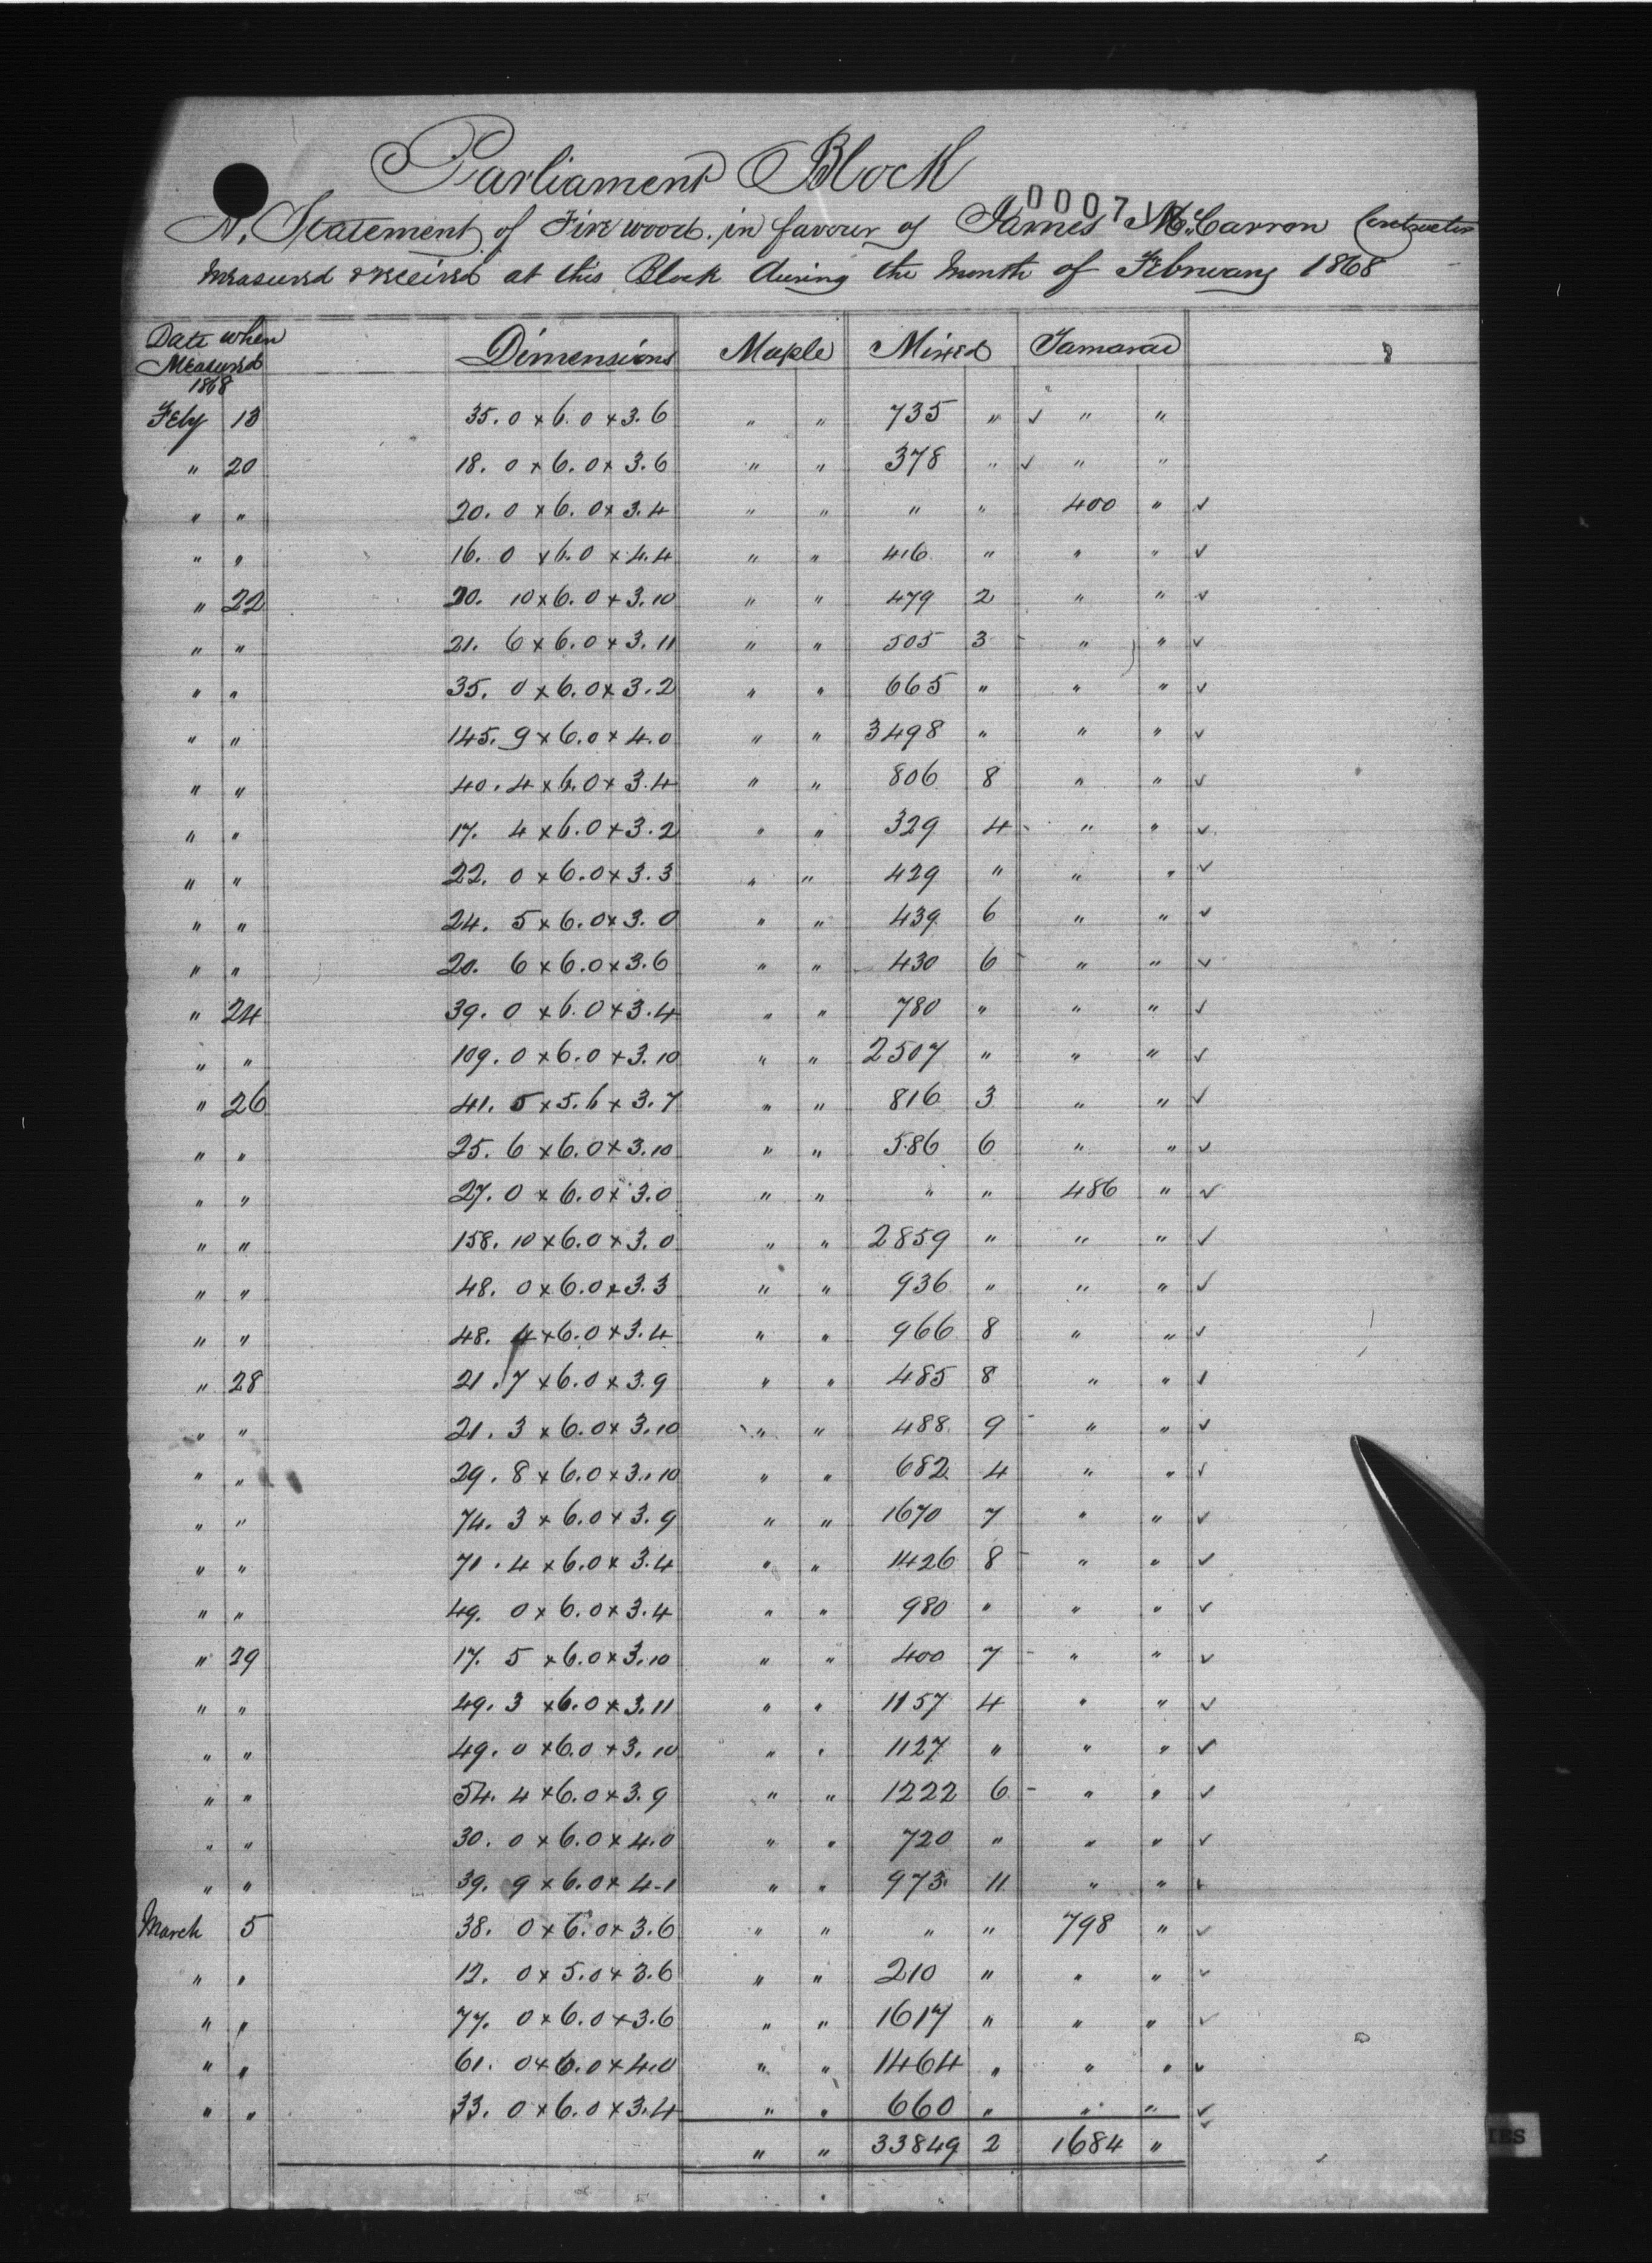 Parliament Block
00071
A Statement of Fire wood in favour of James McCarron Contractor
Measured & received at this Block during the Month of February 1868
Date when Measured 1868 Dimensions Maple Mixed Tamarac
Feby 13 35.0 x 6.0 x 3.6 " " 735 " ✓ " "
" 20 18.0 x 6.0 x 3.6 " " 378 " ✓ " "
" " 20.0 x 6.0 x 3.4 " " " " 400 " ✓
" " 16.0 x 6.0 x 4.4 " " 416 " " " ✓
" 22 20.10 x 6.0 x 3.10 " " 479 2 " " ✓
" " 21.6 x 6.0 x 3.11 " " 505 3 " " ✓
" " 35.0 x 6.0 x 3.2 " " 665 " " " ✓
" " 145.9 x 6.0 x 4.0 " " 3498 " " " ✓
" " 40.4 x 6.0 x 3.4 " " 806 8 " " ✓
" " 17.4 x 6.0 x 3.2 " " 329 4 " " ✓
" " 22.0 x 6.0 x 3.3 " " 429 " " " ✓
" " 24.5 x 6.0 x 3.0 " " 439 6 " " ✓
" " 20.6 x 6.0 x 3.6 " " 430 6 " " ✓
" 24 39.0 x 6.0 x 3.4 " " 780 " " " ✓
" " 109.0 x 6.0 x 3.10 " " 2507 " " " ✓
" 26 41.5 x 5.6 x 3.7 " " 816 3 " " ✓
" " 25.6 x 6.0 x 3.10 " " 586 6 " " ✓
" " 27.0 x 6.0 x 3.0 " " " " 486 " ✓
" " 158.10 x 6.0 x 3.0 " " 2859 " " " ✓
" " 48.0 x 6.0 x 3.3 " " 936 " " " ✓
" " 48.4 x 6.0 x 3.4 " " 966 8 " " ✓
" 28 21.7 x 6.0 x 3.9 " " 485 8 " " ✓
" " 21.3 x 6.0 x 3.10 " " 488 9 " " ✓
" " 29.8 x 6.0 x 3.10 " " 682 4 " " ✓
" " 74.3 x 6.0 x 3.9 " " 1670 7 " " ✓
" " 71.4 x 6.0 x 3.4 " " 1426 8 " " ✓
" " 49.0 x 6.0 x 3.4 " " 980 " " " ✓
" 29 17.5 x 6.0 x 3.10 " " 400 7 " " ✓
" " 49.3 x 6.0 x 3.11 " " 1157 4 " " ✓
" " 49.0 x 6.0 x 3.10 " " 1127 " " " ✓
" " 54.4 x 6.0 x 3.9 " " 1222 6 " " ✓
" " 30.0 x 6.0 x 4.0 " " 720 " " " ✓
" " 39.9 x 6.0 x 4-1 " " 973 11 " " ✓
March 5 38.0 x 6.0 x 3.6 " " " " 798 " ✓
" " 12.0 x 5.0 x 3.6 " " 210 " " " ✓
" " 77.0 x 6.0 x 3.6 " " 1617 " " " ✓
" " 61.0 x 6.0 x 4.0 " " 1464 " " " ✓
" " 33.0 x 6.0 x 3.4 " " 660 " " " ✓
" " 33849 2 1684 " ✓
IES